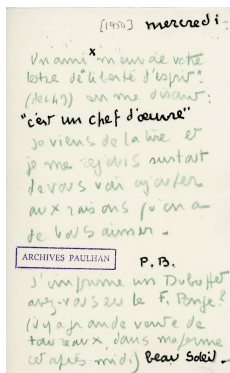 [1950] mercredi
x
Un ami m'envoie votre
lettre de "liberté d'esprit"
(déc 49) en me disant:
"c'est un chef d'œuvre"
je viens de la lire et
je me réjouis surtout
de vous voir ajouter
aux raisons qu'on a
de vous aimer.
P.B.
ARCHIVES PAULHAN
J'imprime un Dubuffet
avez-vous eu le F. Ponge?
(il y a grande vente de
taureaux, dans ma ferme
cet après midi) beau soleil.